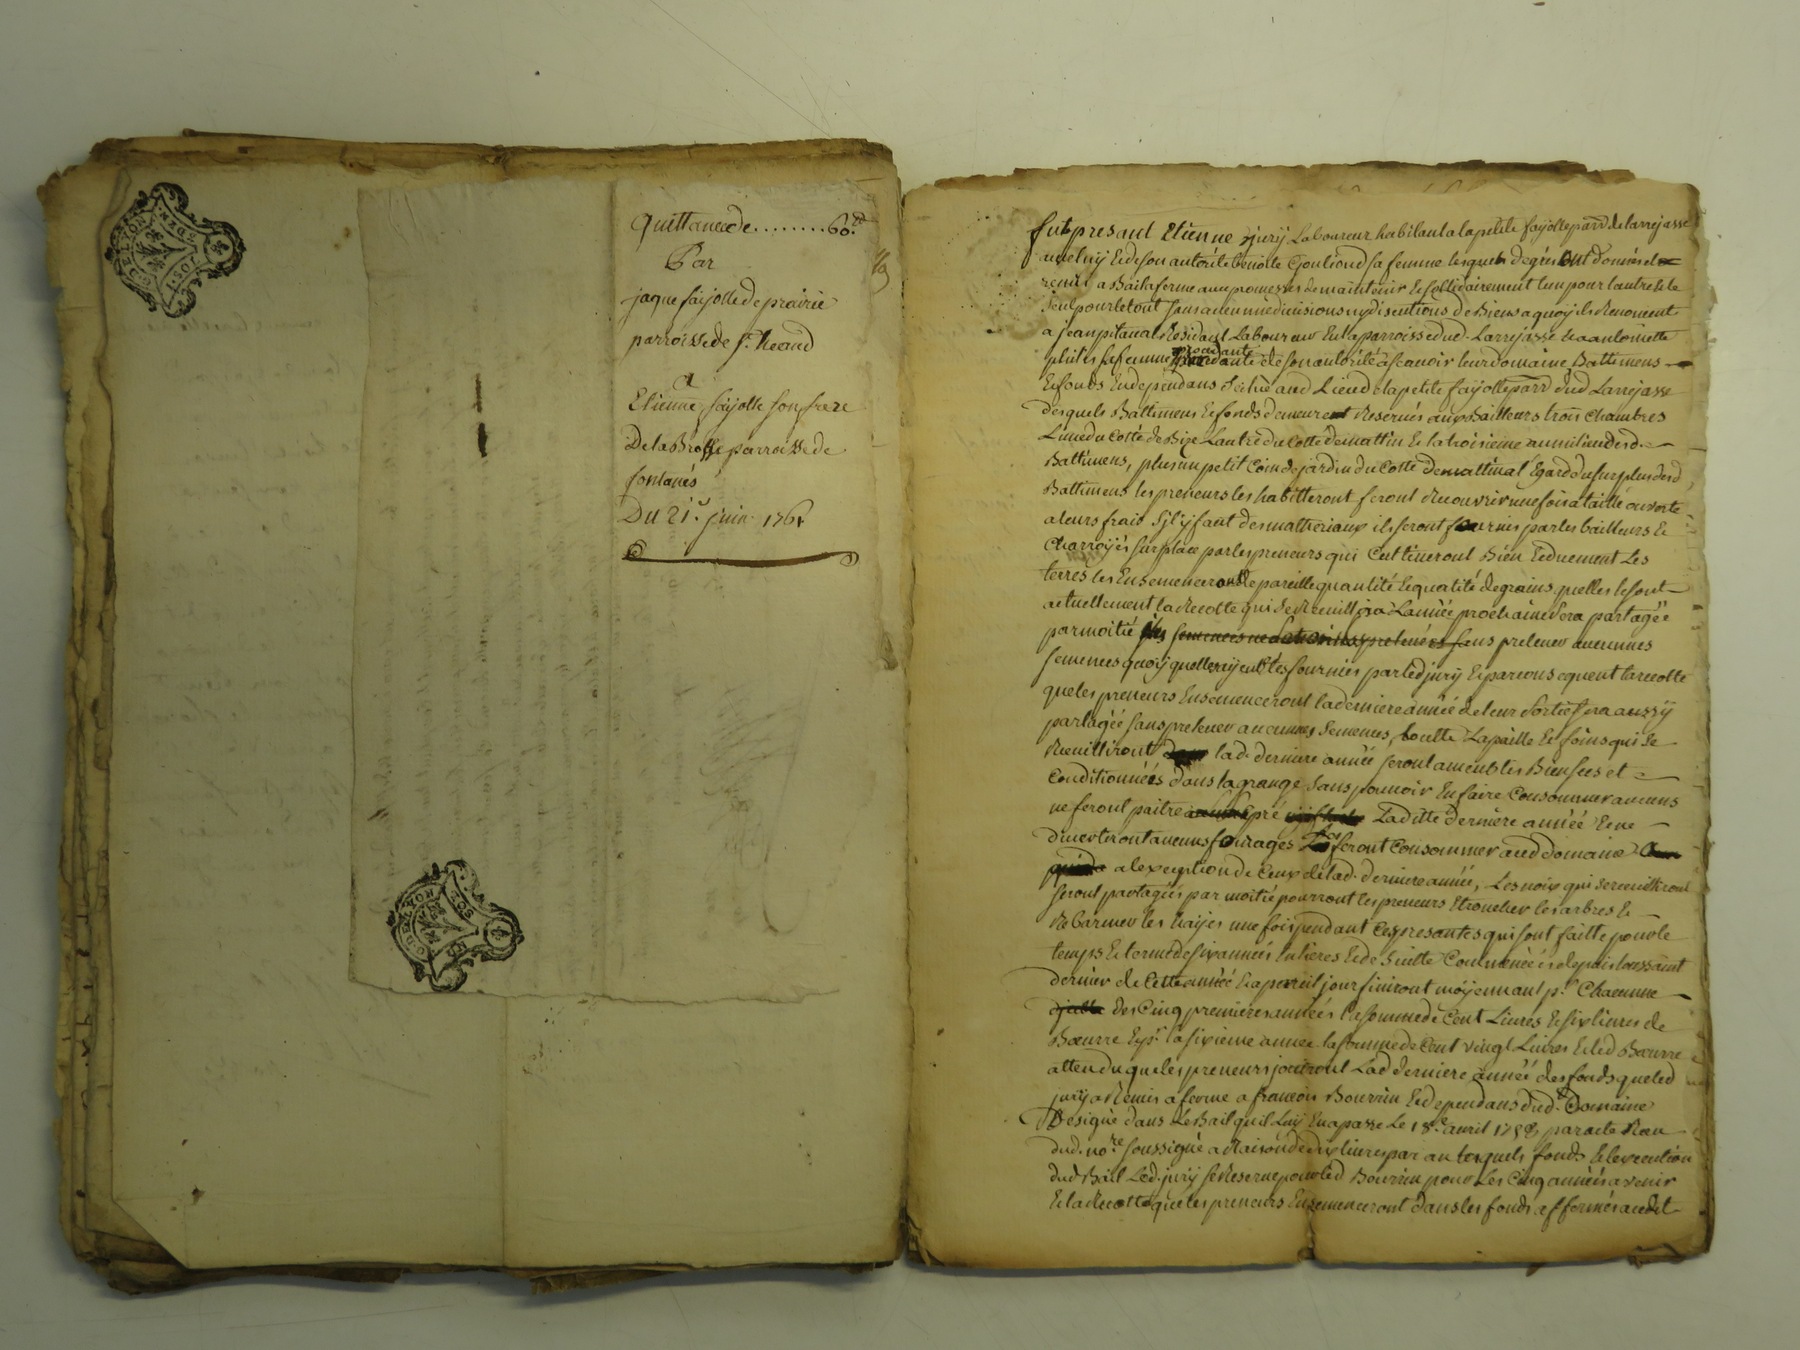 quittance de ........ 60.ᵗᵗ
Par
jaque fayolle de prairie
parroisse de S.ᵗ heand
A
Etienne fayolle son frere
De la Brosse parroisse de
fontanés
Du 21.ᵉ juin 1761
GEN. DE LYON
DEUX SOLS
G. DE LYON
fut present Etienne jurÿ Laboureur habitant a la petite fayolle parr de larrejasse
avec luÿ Et de son autorité benoite Goutiond sa femme lesquels de gré ont donné et
remis a Bail a ferme avec promesses de maintenir Et sollidairement l'un pour l'autre Et le
seul pour le tout sans aucunne divisions nÿ discutions de Biens a quoÿ ils Renoncent
a jean pitaval Residant Laboureur En la parroisse dud. Larrejasse Et a antoinette
sa femme procedante de son autorité a scavoir leur domaine Battimens
Et fonds En dependans Scitué aud Lieu de la petite fayolle parr dud Larrejasse
desquels Battimens Et fonds demeurent Reservés aux Bailleurs trois Chambres
L'une du Costé de Bize L'autre du Cotté de mattin Et la troisieme au millieu desd.
Battimens, plus un petit Coin de jardin du Cotté de mattin a l'Egard du surplus desd
Battimens les preneurs les habitteront feront Recouvrir une fois a taille ouverte
a leurs frais S'jl ÿ faut des matteriaux ils seront fournis par les bailleurs Et
Charroyés sur place par les preneurs qui Cultiveront Bien Et duement Les
terres les Ensemenceront de pareille quantité Et qualité de grains quelles le sont
actuellement la Recolte qui se Recuillira L'année prochaine sera partagée
par moitié sans prelever aucunnes
semences quoÿ quelles aÿent été fournies par led jurÿ Et par consequent la recolte
que les preneurs Ensemenceront la derniere année de leur sortie sera aussÿ
partagée sans prelever aucunnes semences, toutte La paille Et foins qui se
Recuilliront lad. derniere année seront amenbtés Bien secs et
Conditionnées dans la grange sans pouvoir En faire Consommer aucuns
ne feront paitre pré Laditte derniere année Et ne
divertiront aucuns fourages Les feront Consommer aud domaine
a l'exception de Ceux de lad. derniere année, Les noix qui se recuilliront
seront partagées par moitié pourront les preneurs Etroncher les arbres Et
Rebarrer les haÿes une fois pendant Ces presantes qui sont faitte pour le
temps Et terme de six années Entieres Et de Suitte Commencées depuis toussaint
dernier de Cette année Et a pareil jour finiront moÿennant p.ʳ Chacunne
des Cinq premieres années la somme de Cent Livres Et six livres de
Bœurre Et p.ʳ la sixieme année la somme de Cent vingt Livres Et led Bœurre
attendu que les preneurs jouiront Lad derniere année des fonds que led
jurÿ a Remis a ferme a françois Bourrin Et dependans dud. Domaine
Designé dans Le Bail qu'il Luÿ En a passé Le 18.ᵉ avril par acte Recu
dud. no.ʳᵉ soussigné a Raison de dix livres par an lesquels fonds Et l'execution
dud Bail Led. jurÿ se Reserve pour led Bourrin pour Les Cinq années a venir
Et la Recolte que les preneurs Ensemenceront dans les fonds affermés audit